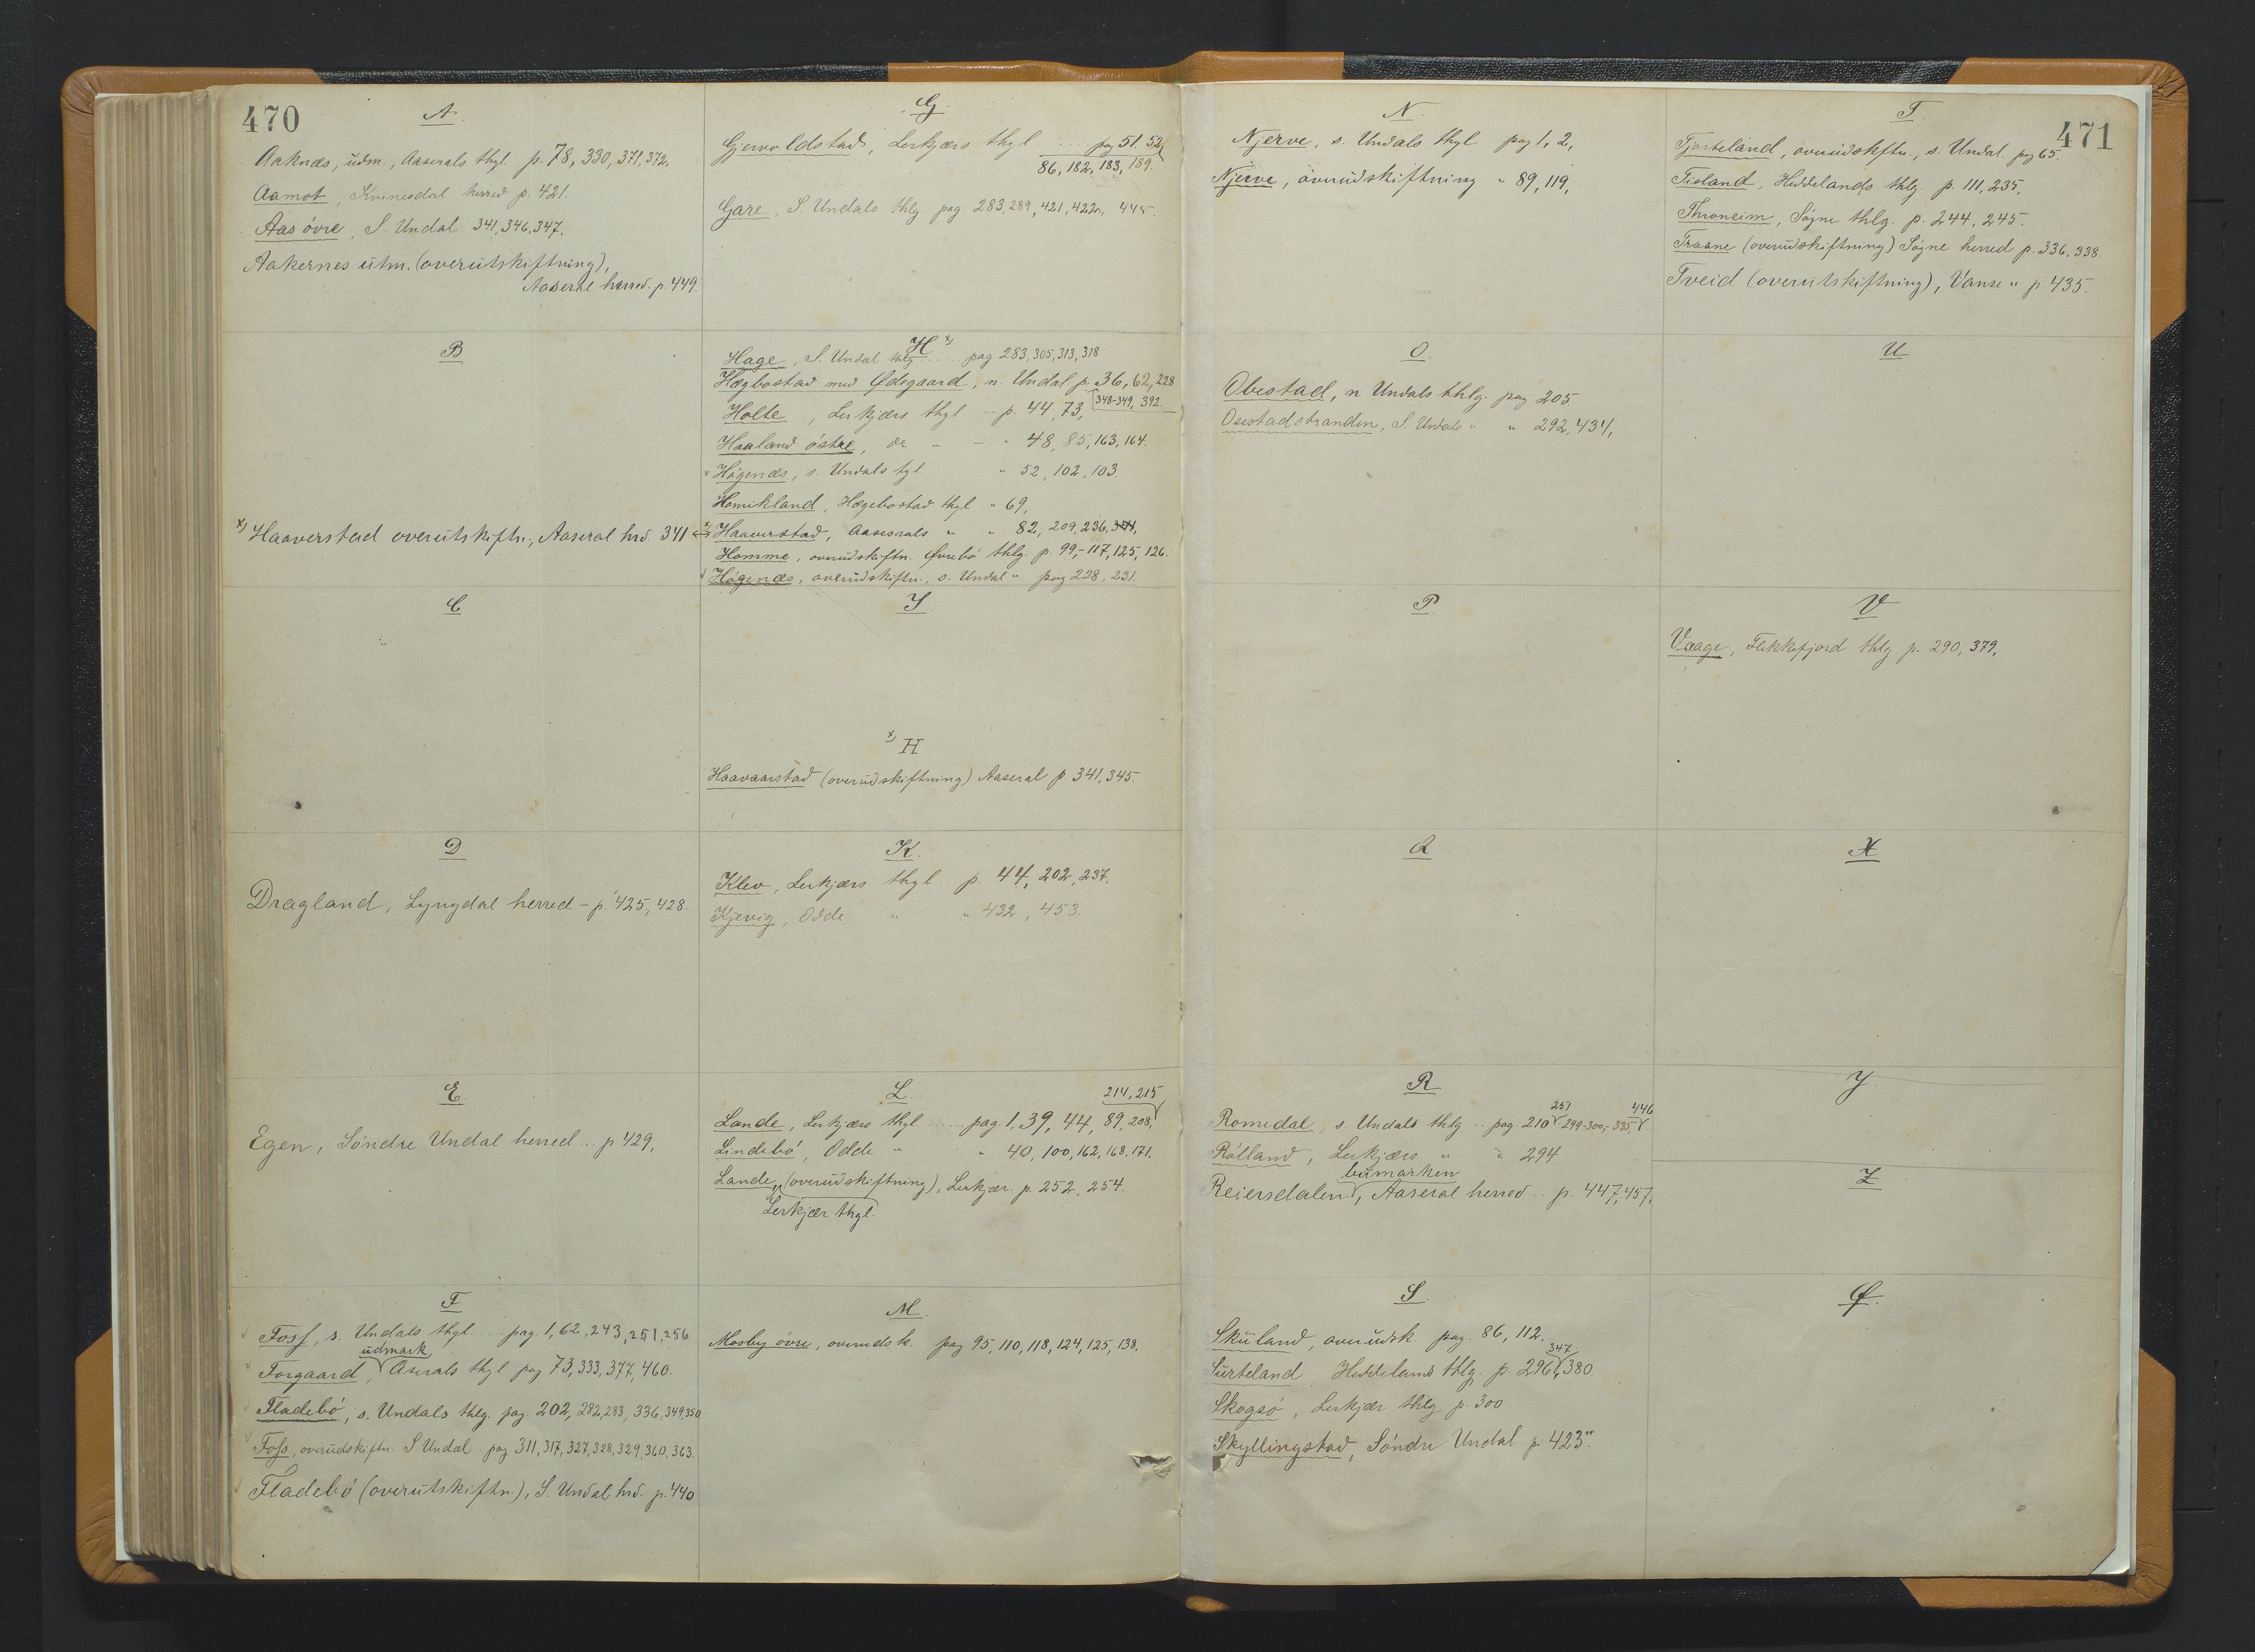 470
A.
Aaknæs, udm., Aaserals thgl. p. 78, 330, 371, 372.
Aamot, Kvinesdal herred p. 421.
Aas øvre, S. Undal 341, 346, 347.
Aakernes utm. (overutskiftning),
Aaseral herred. p. 449.
B
x) Haaverstad overutskiftn., Aaseral hrd. 341
C
D
Dragland, Lyngdal herred - p. 425, 428.
E.
Egen, Søndre Undal herred .. p 429,
F
Foss, s. Undals thgl. ... pag. 1, 62, 243, 251, 256
udmark
Forgaard, Aserals thgl pag 73, 333, 377, 460.
Fladebø, s. Undals thlg. pag. 202, 282, 283, 336, 349, 350
Foss, overudskiftn. S. Undal pag 311, 317, 327, 328, 329, 360, 363.
Fladebø (overutskiftn.), S. Undal hrd. p. 440
G
Gjervoldstad, Lerkjærs thgl ... pag 51. 52,
86, 182, 183, 189.
Gare, S. Undals thlg pag 283, 289, 421, 422, 445.
H x)
Hage, S. Undal thlg ... pag 283, 305, 313, 318
Hægbostad med Ødegaard, n. Undal p. 36, 62, 228
348-349, 392.
Holte, Lerkjærs thgl - p. 44, 73,
Haaland østre, do " - " 48, 85, 163, 164.
Høgenæs, s. Undals tgl " 52, 102, 103.
Homikland, Hægebostad thgl " 69,
x) Haaverstad, Aaserals " " 82, 209, 236, 341,
Homme, overudskiftn. Øvrebø thlg. p. 99,- 117, 125, 126.
Høgenæs, overudskiftn., s. Undal " pag 228, 231.
I
x) H
Haavaarstad (overudskiftning) Aaseral p 341, 345.
K.
Klev, Lerkjærs thgl. p. 44, 202, 237.
Kjevig, Odde " " 432, 453.
L.
214, 215
Lande, Lerkjærs thgl ... pag 1, 39, 44, 89, 208,
Lindebø, Odde " " 40, 100, 162, 168, 171.
Lande, (overudskiftning), Lerkjær. p. 252, 254.
Lerkjær thgl.
M.
Mosby øvre, overudsk. pag 95, 110, 118, 124, 125, 138.
471
N.
Njerve, s. Undals thgl pag 1, 2,
Njerve, overudskiftning " 89, 119,
O.
Obestad, n Undals thlg. pag 205
Osestadstranden, S. Undals " " 292, 434,
P
Q
R
257 446
Romedal, s. Undals thlg .. pag 210 299-300,- 335,
Rølland, Lerkjærs " " 294
bumarken
Reiersdalen, Aaseral herred .. p. 447, 457,
S.
Skuland, overudsk. pag. 86, 112.
347
Surteland Heddelands thlg. p. 296, 380.
Skogsø, Lerkjær thlg p. 300
Skyllingstad, Søndre Undal p 423".
T.
Tjorteland, overudskftn., s. Undal. pag 65.
Tisland, Heddelands thlg. p. 111, 235,
Throneim, Søgne thlg. p. 244, 245.
Traane (overudskiftning) Søgne herred p. 336, 338.
Tveid (overutskiftning), Vanse " p 435.
U
V
Vaage, Flekkefjord thlg p. 290, 379,
X
Y
Z
Ø.